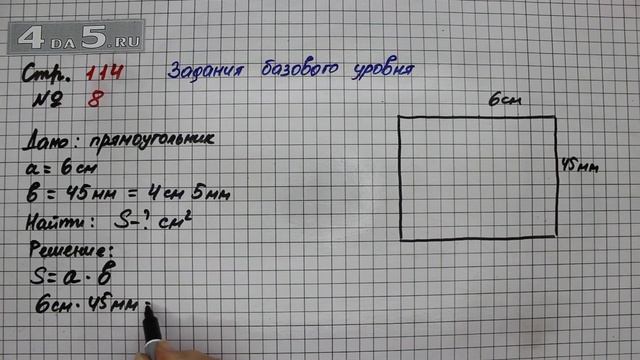 4DA5.RU
Стр. 114 Задания базового уровня
№ 8
6см
Дано: прямоугольник
a = 6см
45мм
в = 45мм = 4см 5мм
Найти: S-? см²
Решение:
S = a · в
6см · 45мм =